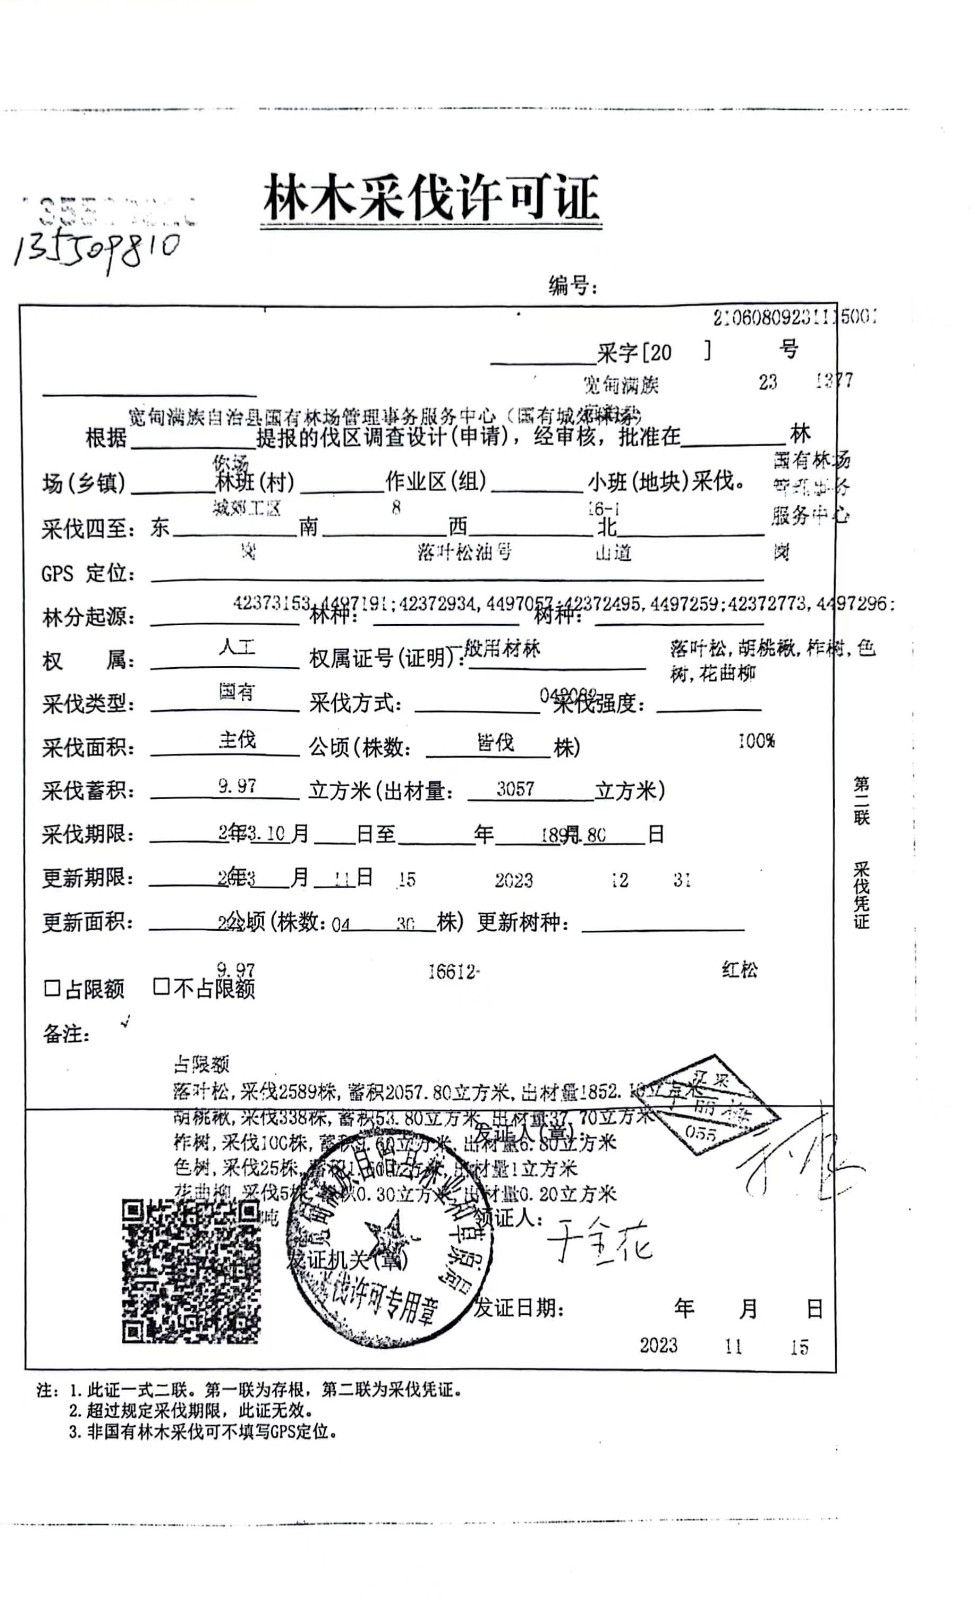 林木采伐许可证
135509810
编号：
2106080923111500
采字[20 ] 号
宽甸满族 23 1377
宽甸满族自治县国有林场管理事务服务中心（国有城郊林场）
根据 提报的伐区调查设计(申请)，经审核，批准在 林
国有林场
场(乡镇) 林班(村) 作业区(组) 小班(地块)采伐。
管理事务
城郊工区 8 16-1
服务中心
采伐四至：东 南 西 北
岗 落叶松油号 山道 岗
GPS 定位：
42373153,4497191;42372934,4497057;42372495,4497259;42372773,4497296;
林分起源： 林种： 树种：
人工 一般用材林 落叶松,胡桃楸,柞树,色
树,花曲柳
权 属： 权属证号(证明)：
国有
采伐类型： 采伐方式： 采伐强度：
主伐 皆伐 100%
采伐面积： 公顷(株数： 株)
9.97 3057
采伐蓄积： 立方米(出材量： 立方米)
采伐期限： 年 月 日至 年 月 日
2023 11 15 2023 12 31
更新期限： 年 月 日
04 30
更新面积： 公顷(株数： 株) 更新树种：
9.97 16612 红松
□占限额 □不占限额
备注： √
占限额
落叶松,采伐2589株,蓄积2057.80立方米,出材量1852.10立方米
胡桃楸,采伐338株,蓄积53.80立方米,出材量37.70立方米
发证人(章)：
柞树,采伐100株,蓄积 立方米,出材量6.80立方米
色树,采伐25株, 立方米,出材量1立方米
花曲柳,采伐5株, 0.30立方米,出材量0.20立方米
055
领证人： 于全花
发证机关(章)
采伐许可专用章
发证日期： 年 月 日
2023 11 15
第二联 采伐凭证
注：1.此证一式二联。第一联为存根，第二联为采伐凭证。
2.超过规定采伐期限，此证无效。
3.非国有林木采伐可不填写GPS定位。